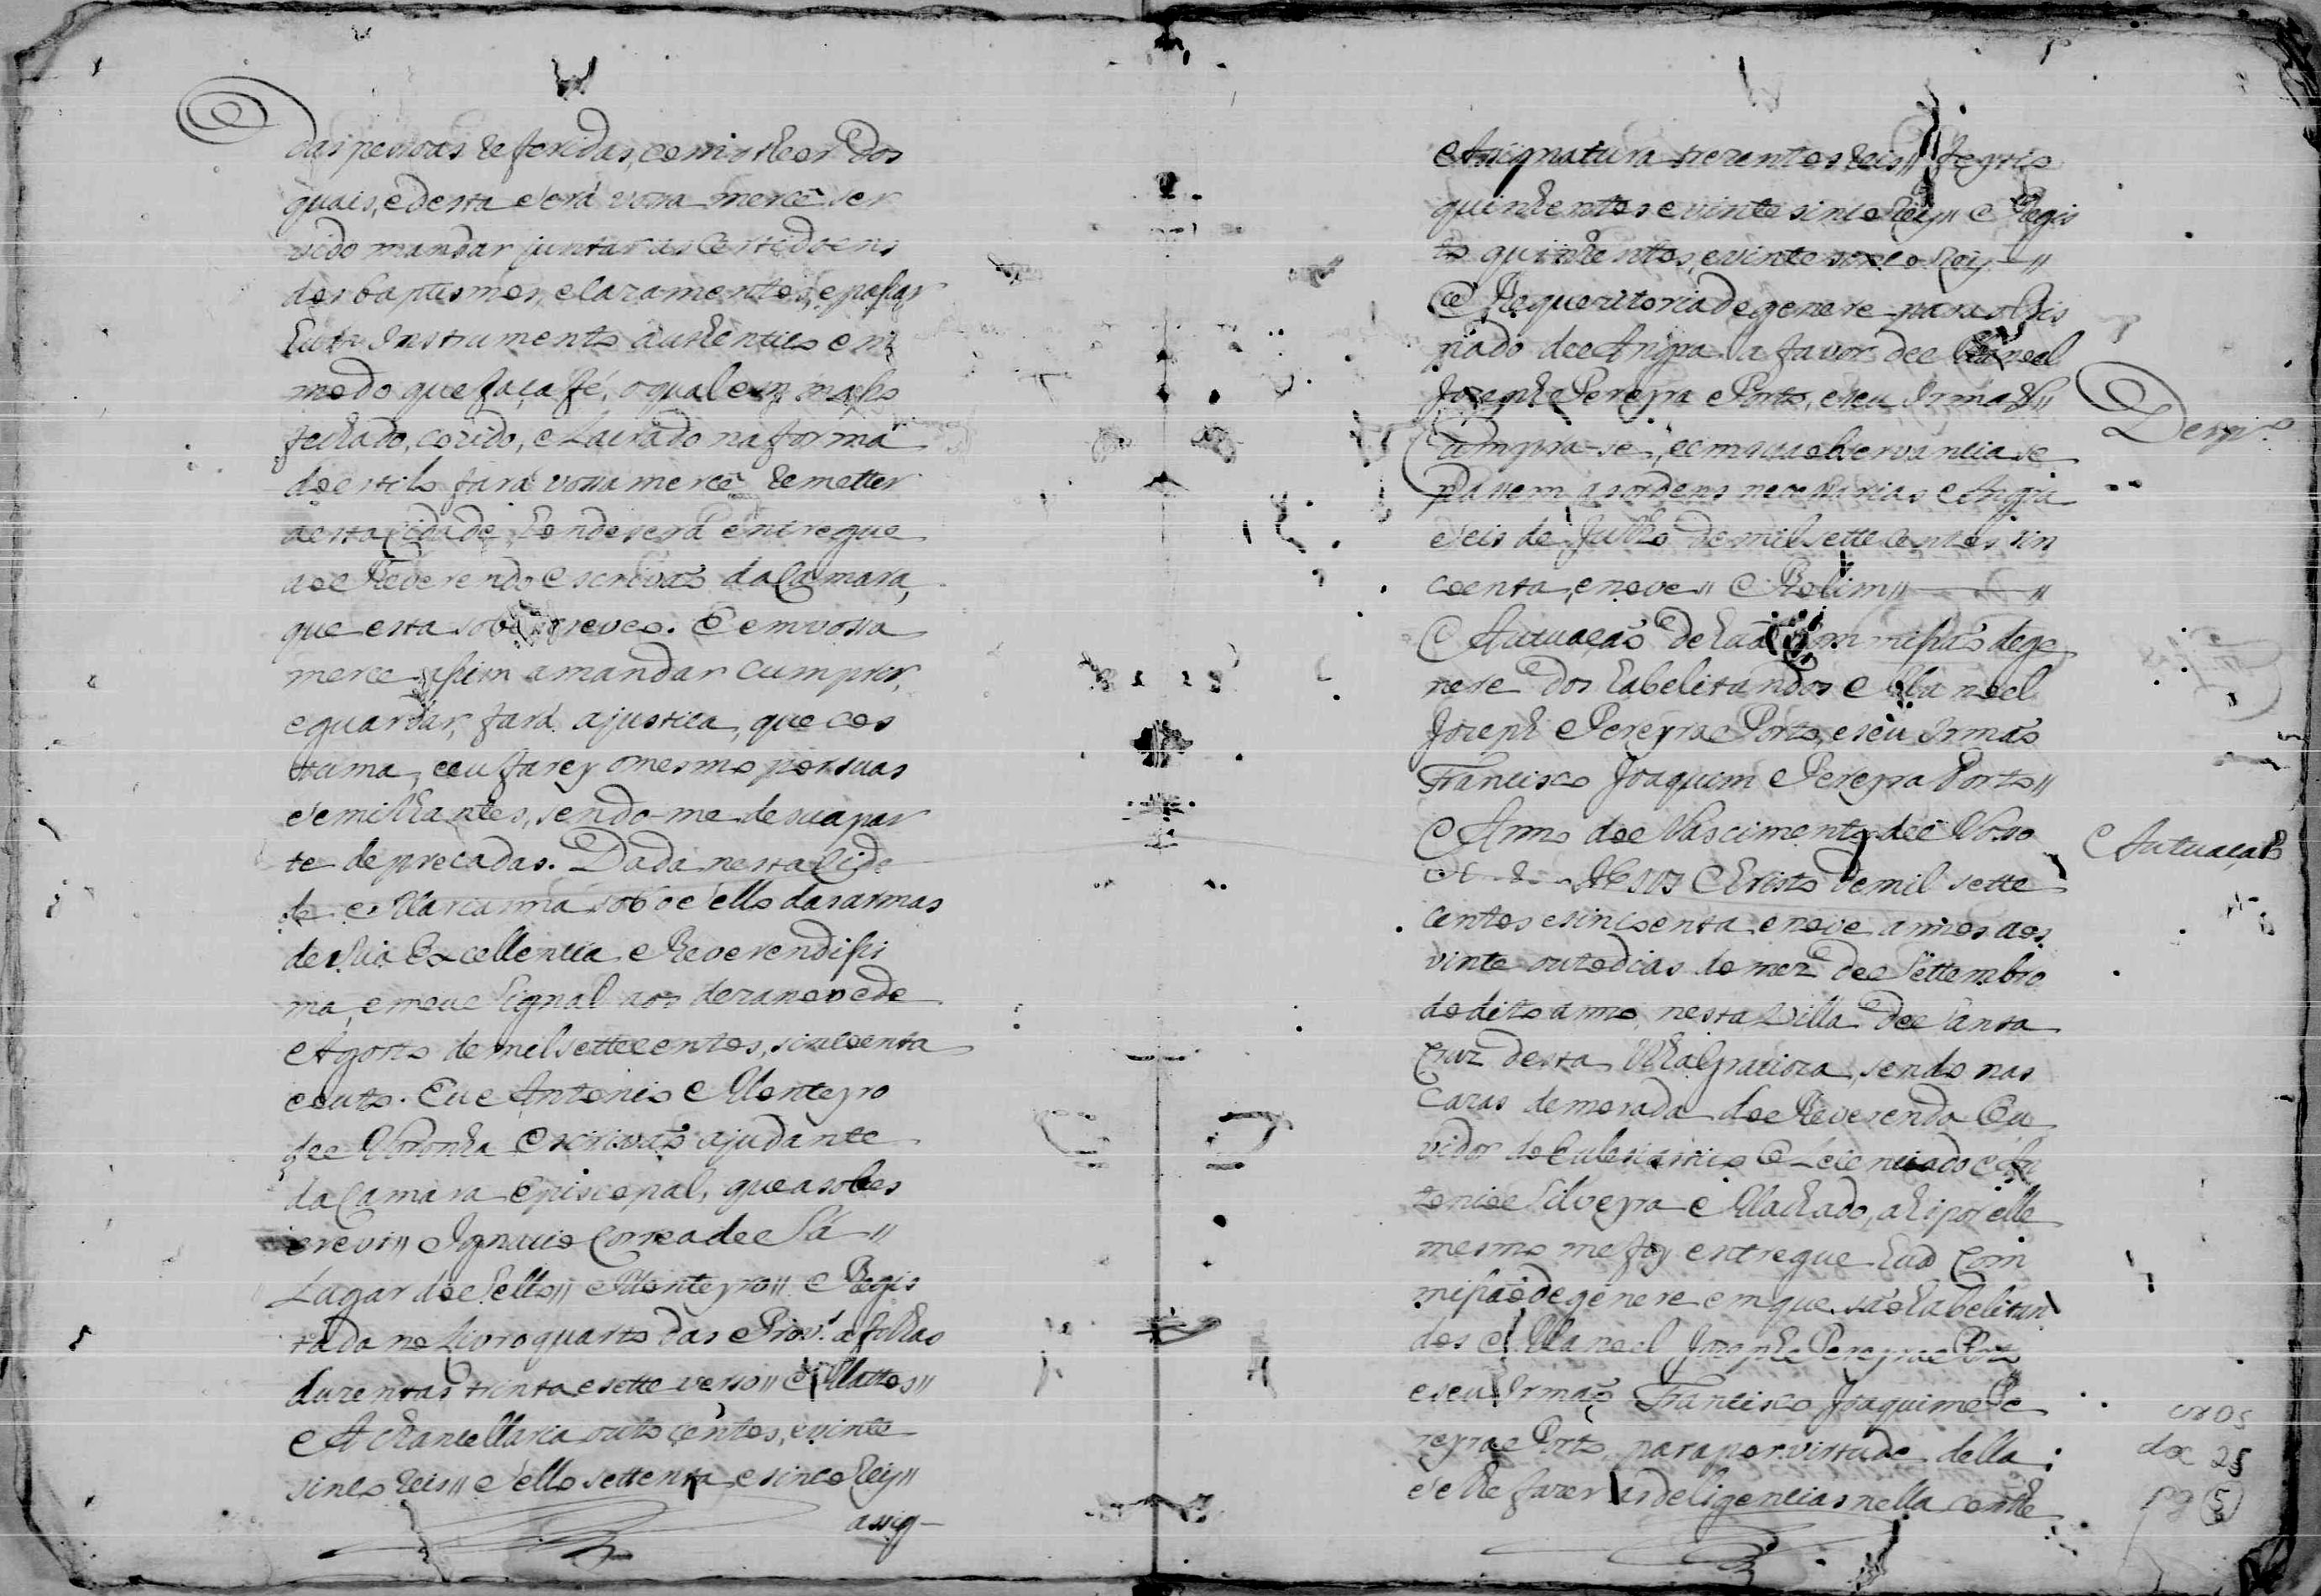 das pessoas referidas, com o theor dos
quais, e desta será vossa merce ser
vido mandar juntar as Certidoens
dos baptismos, e cazamentos, e passar
hum Instrumento authentico em
modo que faça fé, o qual em masso
fechado, cozido, e Lacrado na forma
do estilo fará vossa merce remetter
a esta Cidade, donde será entregue
ao Reverendo escrivaõ da Camara,
que esta sobescreveo. E em vossa
merce assim o mandar cumprir,
e guardar, fará a justica, que cos
tuma, e eu farey o mesmo por suas
semilhantes, sendo-me de sua par
te deprecadas. Dada nesta Cida
de Marianna sob o sello das armas
de Sua Excellencia Reverendissi
ma, e meu Signal aos dezanove de
Agosto de mil settecentos, sincoenta
e outo. Eu Antonio Monteyro
de Noronha Escrivaõ ajudante
da Camara Episcopal, que a sobes
crevi〃 Ignacio Correa de Sá〃
Lugar do Sello〃 Monteyro〃 Regis
tada no Livro quarto das Prov.s a folhas
duzentas trinta e sette verso〃 Mattos〃
A Chancellaria outo centos, e vinte
sinco reis〃 Sello settenta, e sinco reis〃
assig-
Assignatura trezentos reis〃 Feytio
quinhentos e vinte sinco reis〃 Regis
to quinhentos, e vinte sinco Reis〃
Requezitoria de genere para o Bis
pado de Angra a favor de Manoel
Jozeph Pereyra Porto, e seu Irmaõ〃
Desp.o
Cumpra-se, e em sua observancia se
passem as ordens necessarias Angra
seis de Julho de mil sette centos sin
coenta, e nove〃 Rolim〃 〃
Autuaçaõ de huã Commissaõ de ge
nere dos habelitandos Manoel
Jozeph Pereyra Porto, e seu Irmaõ
Francisco Joaquim Pereyra Porto〃
Autuaçaõ
Anno do Nascimento de Nosso
Jesus Christo de mil sette
centos e sincoenta e nove annos aos
vinte outo dias do mez de Settembro
do dito anno, nesta Villa de Santa
Cruz desta Ilha Gracioza, sendo nas
cazas de morada do Reverendo Ou
vidor do Eclesiastico o Lecenciado An
tonio Silveyra Machado, ahi por elle
mesmo me foy entregue huã Com
missaõ de genere em que saõ habelitan
dos Manoel Jozeph Pereyra Porto
e seu Irmaõ Francisco Joaquim Pe
reyra Porto, para por virtude della
se lhe fazer as deligencias nella conthe